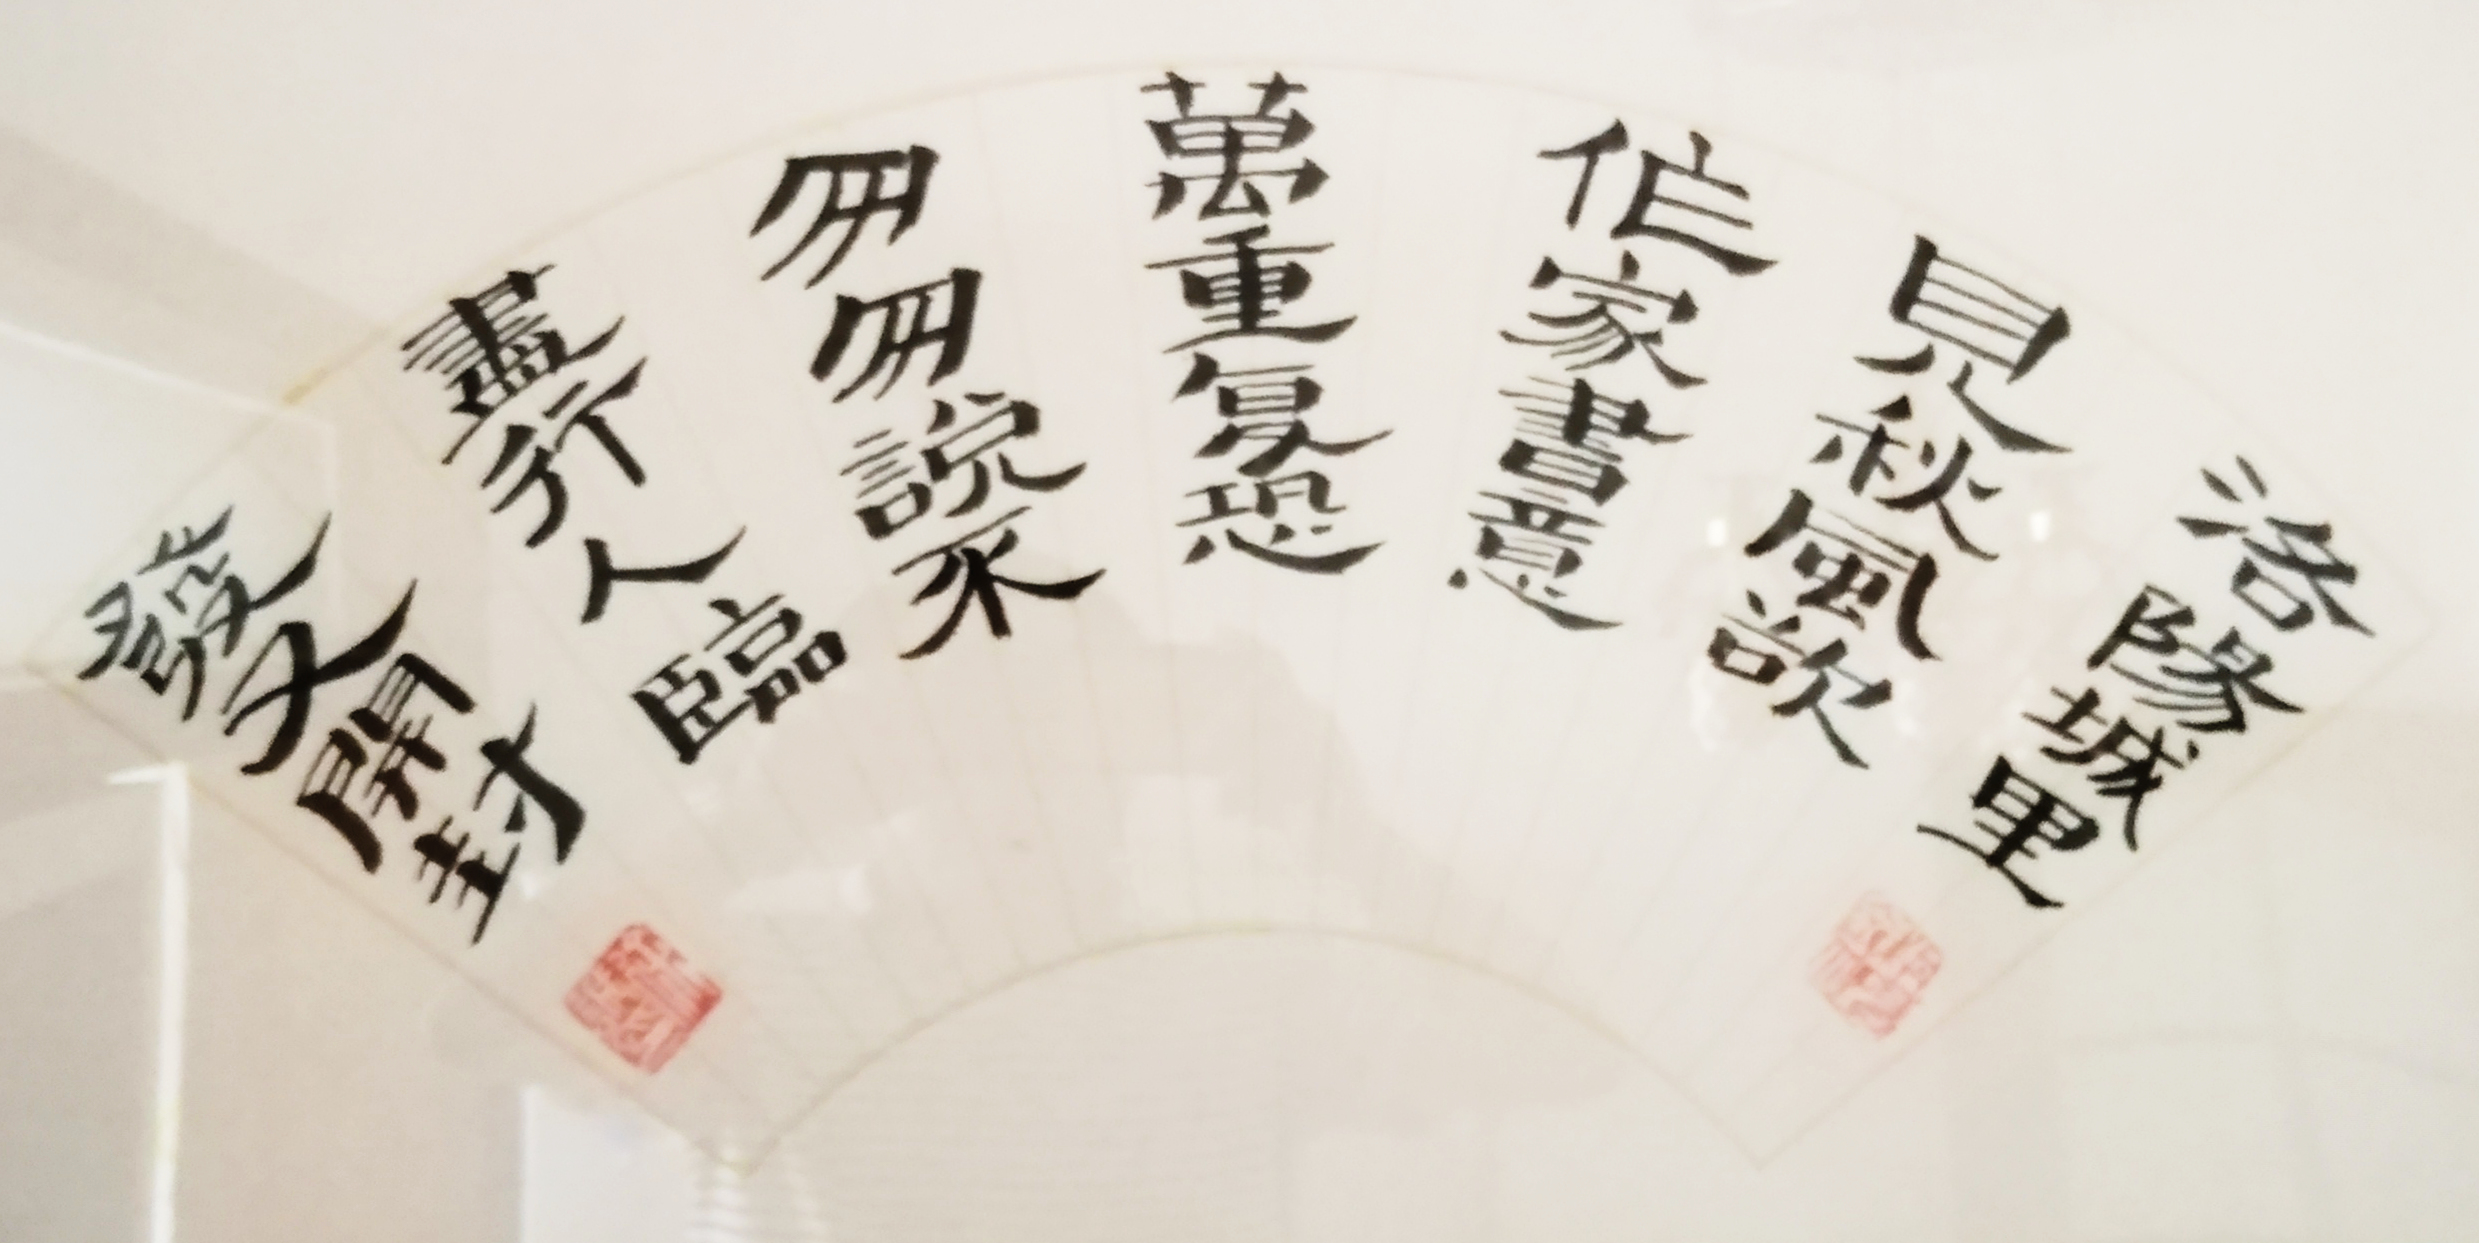 洛陽城里
見秋風欲
作家書意
萬重复恐
匆匆說不
盡行人臨
發又開封